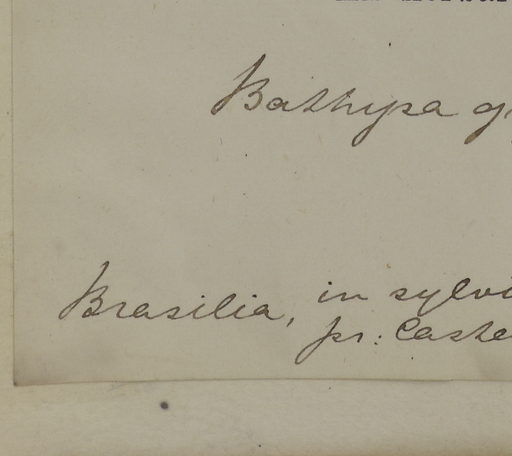 Bathysa g
Brasilia, in sylvi
pr: Caste